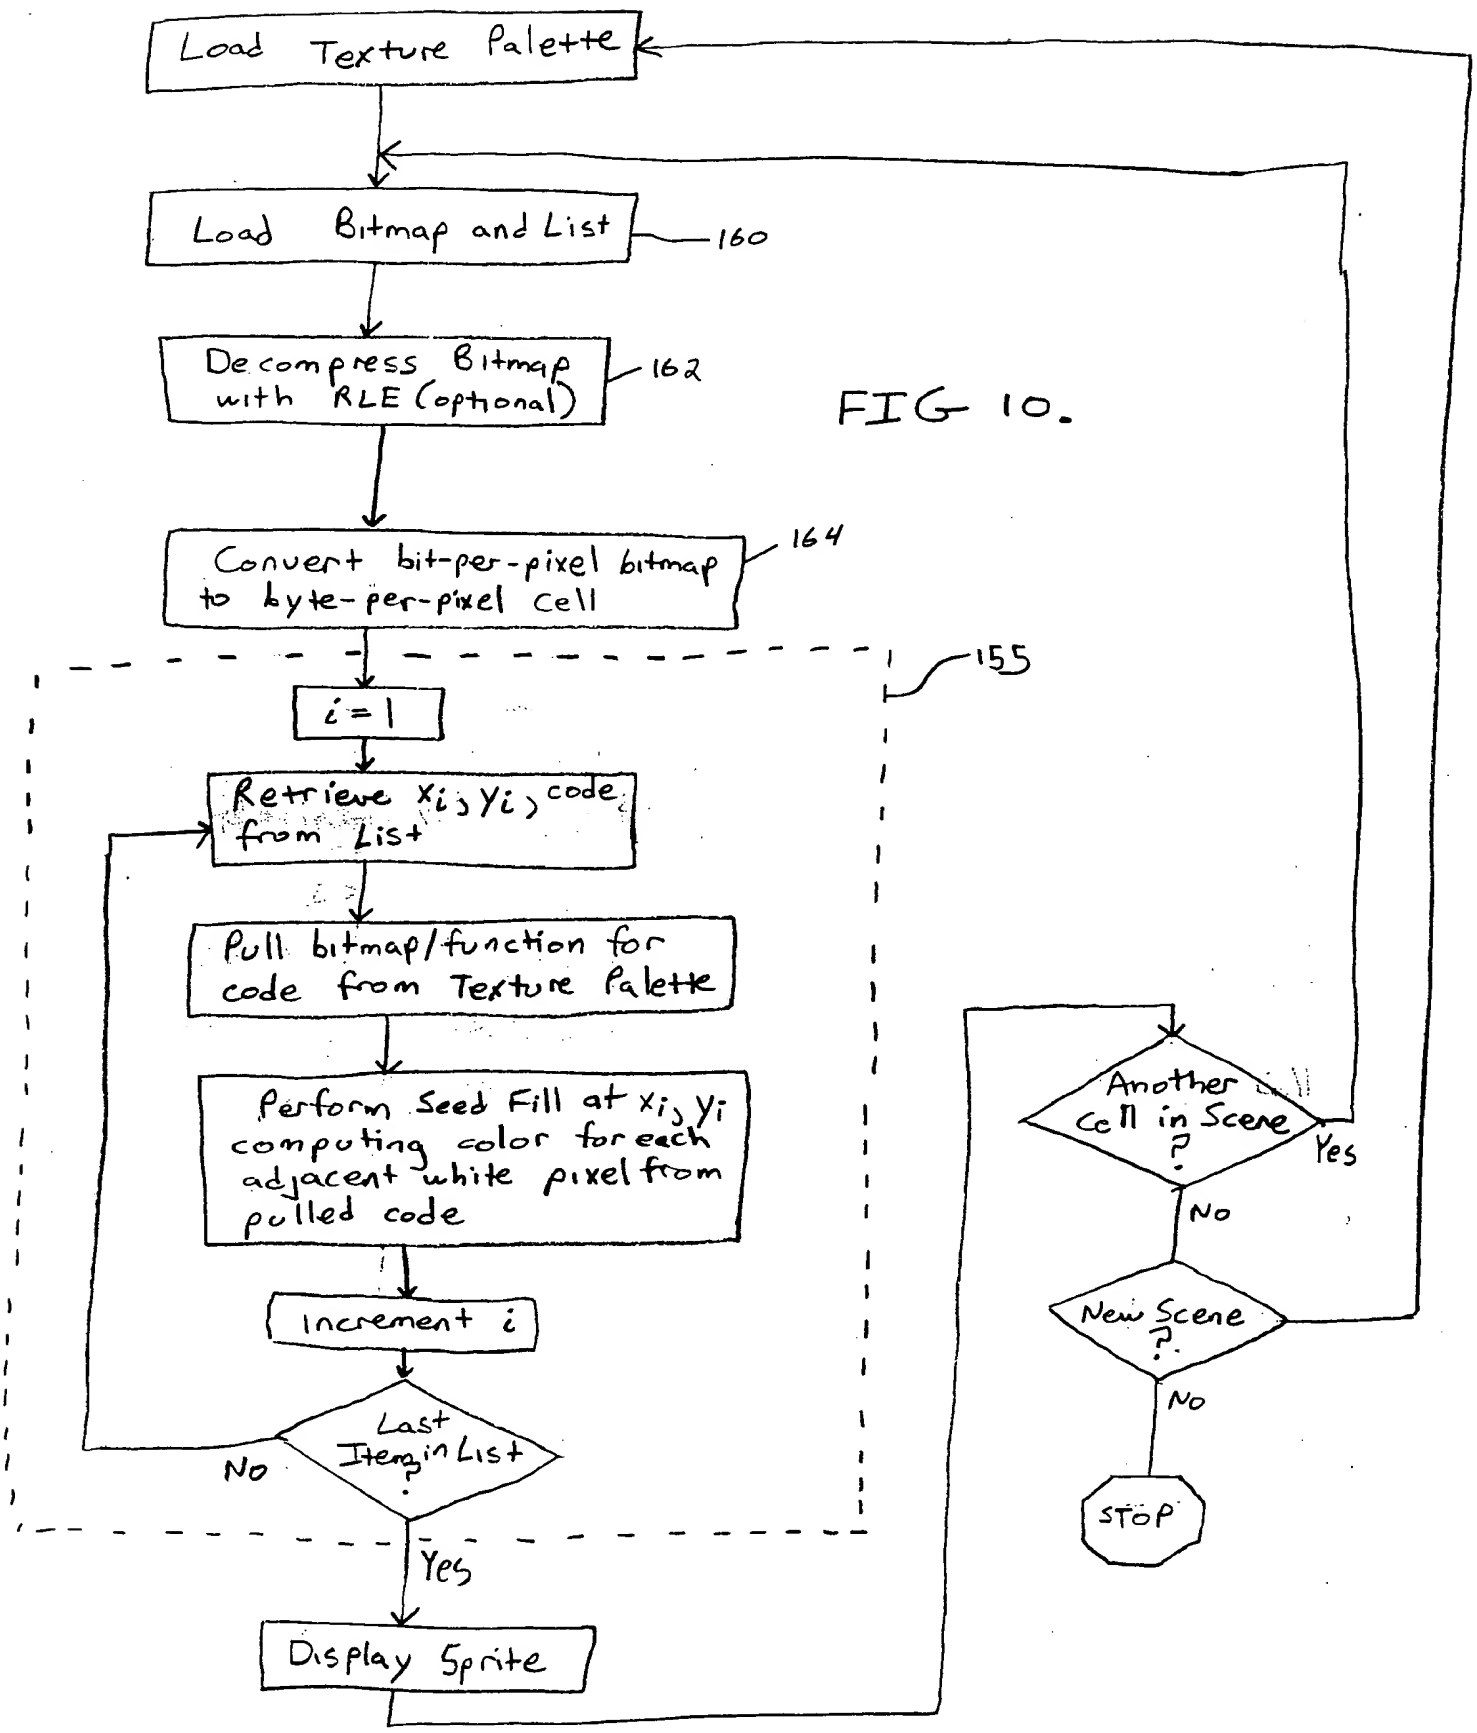 Load Texture Palette
Load Bitmap and List
160
Decompress Bitmap
with RLE (optional)
162
FIG 10.
Convert bit-per-pixel bitmap
to byte-per-pixel cell
164
155
i = 1
Retrieve xi, yi, code
from List
Pull bitmap/function for
code from Texture Palette
Perform Seed Fill at xi, yi
computing color for each
adjacent white pixel from
pulled code
Increment i
Last
Item in List
?
No
Yes
Display Sprite
Another
Cell in Scene
?
Yes
No
New Scene
?
No
STOP